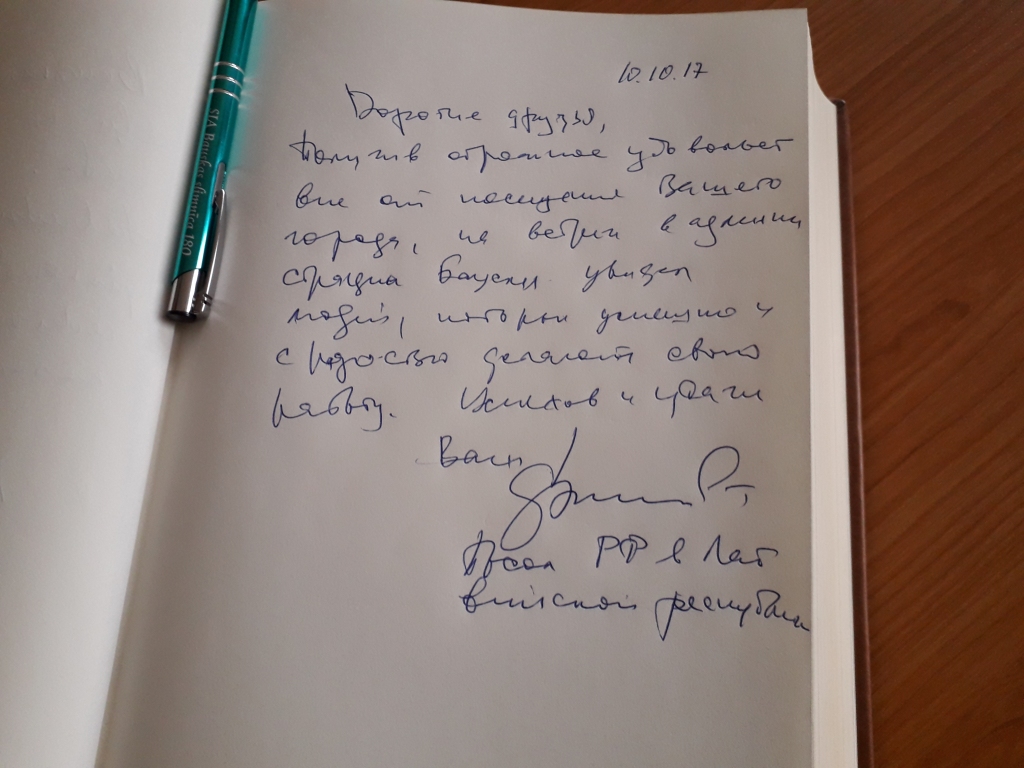 10.10.17
Дорогие друзья,
Получив огромное удовольст
вие от посещения Вашего
города, на встречи в админи
страции Бауски увидел
людей, которые успешно и
с радостью делают свою
работу. Успехов и удачи
Вам
Посол РФ в Лат
вийской республики
SIA Bauskas slimnīca 180